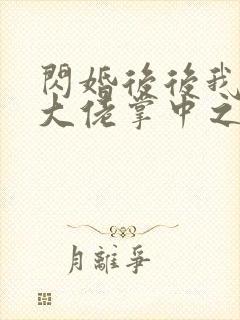 閃婚後後我
大佬掌中之
月離爭